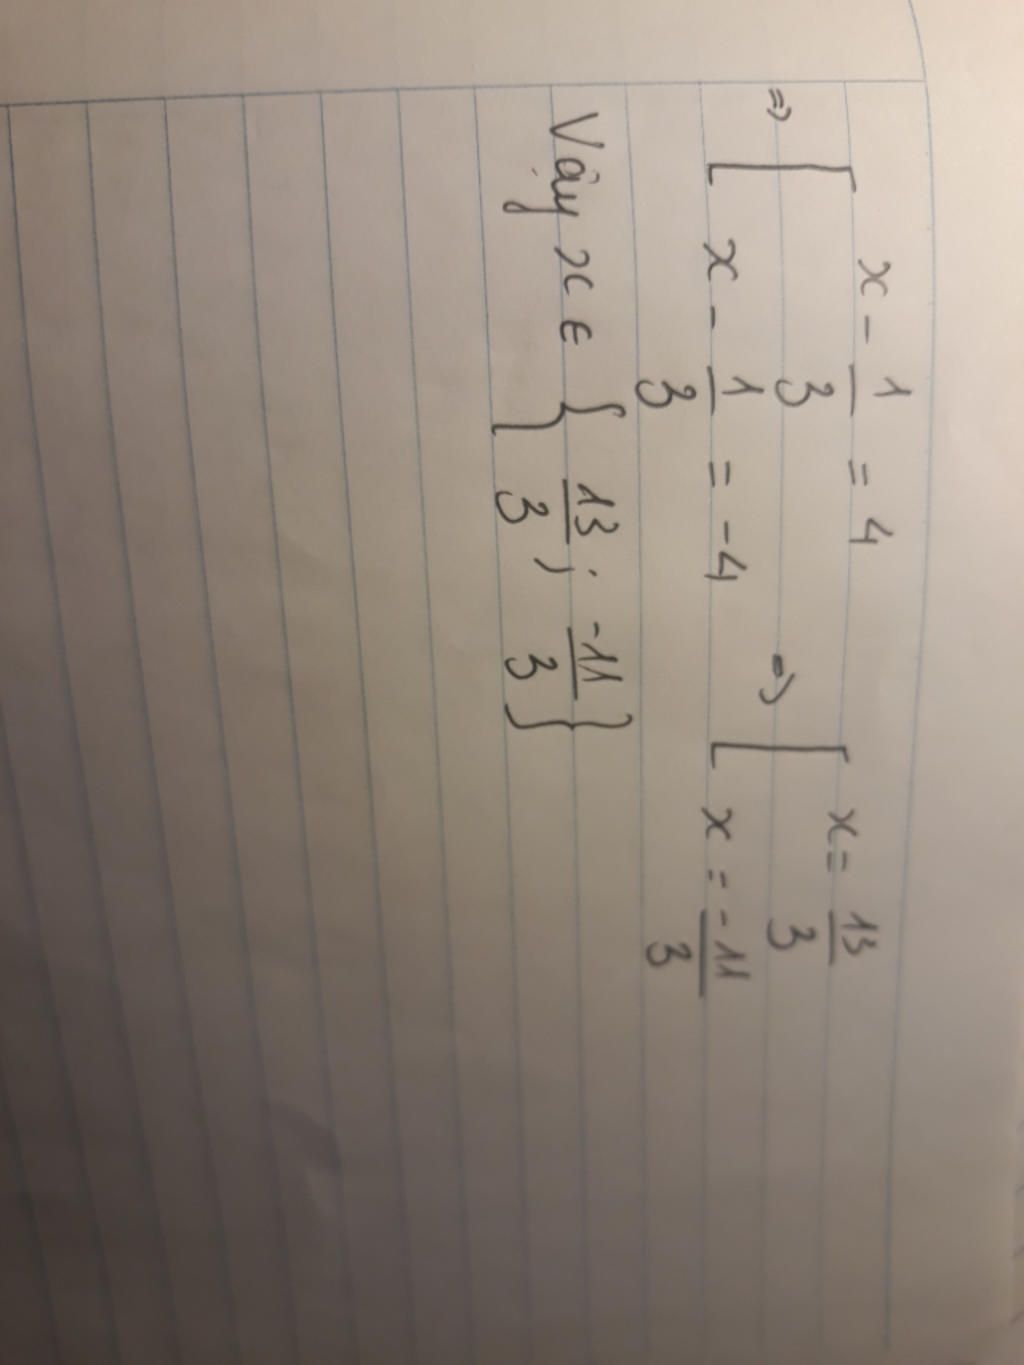 => [ x - 1/3 = 4 => [ x = 13/3
x - 1/3 = -4 x = -11/3
Vậy x ∈ { 13/3 ; -11/3 }